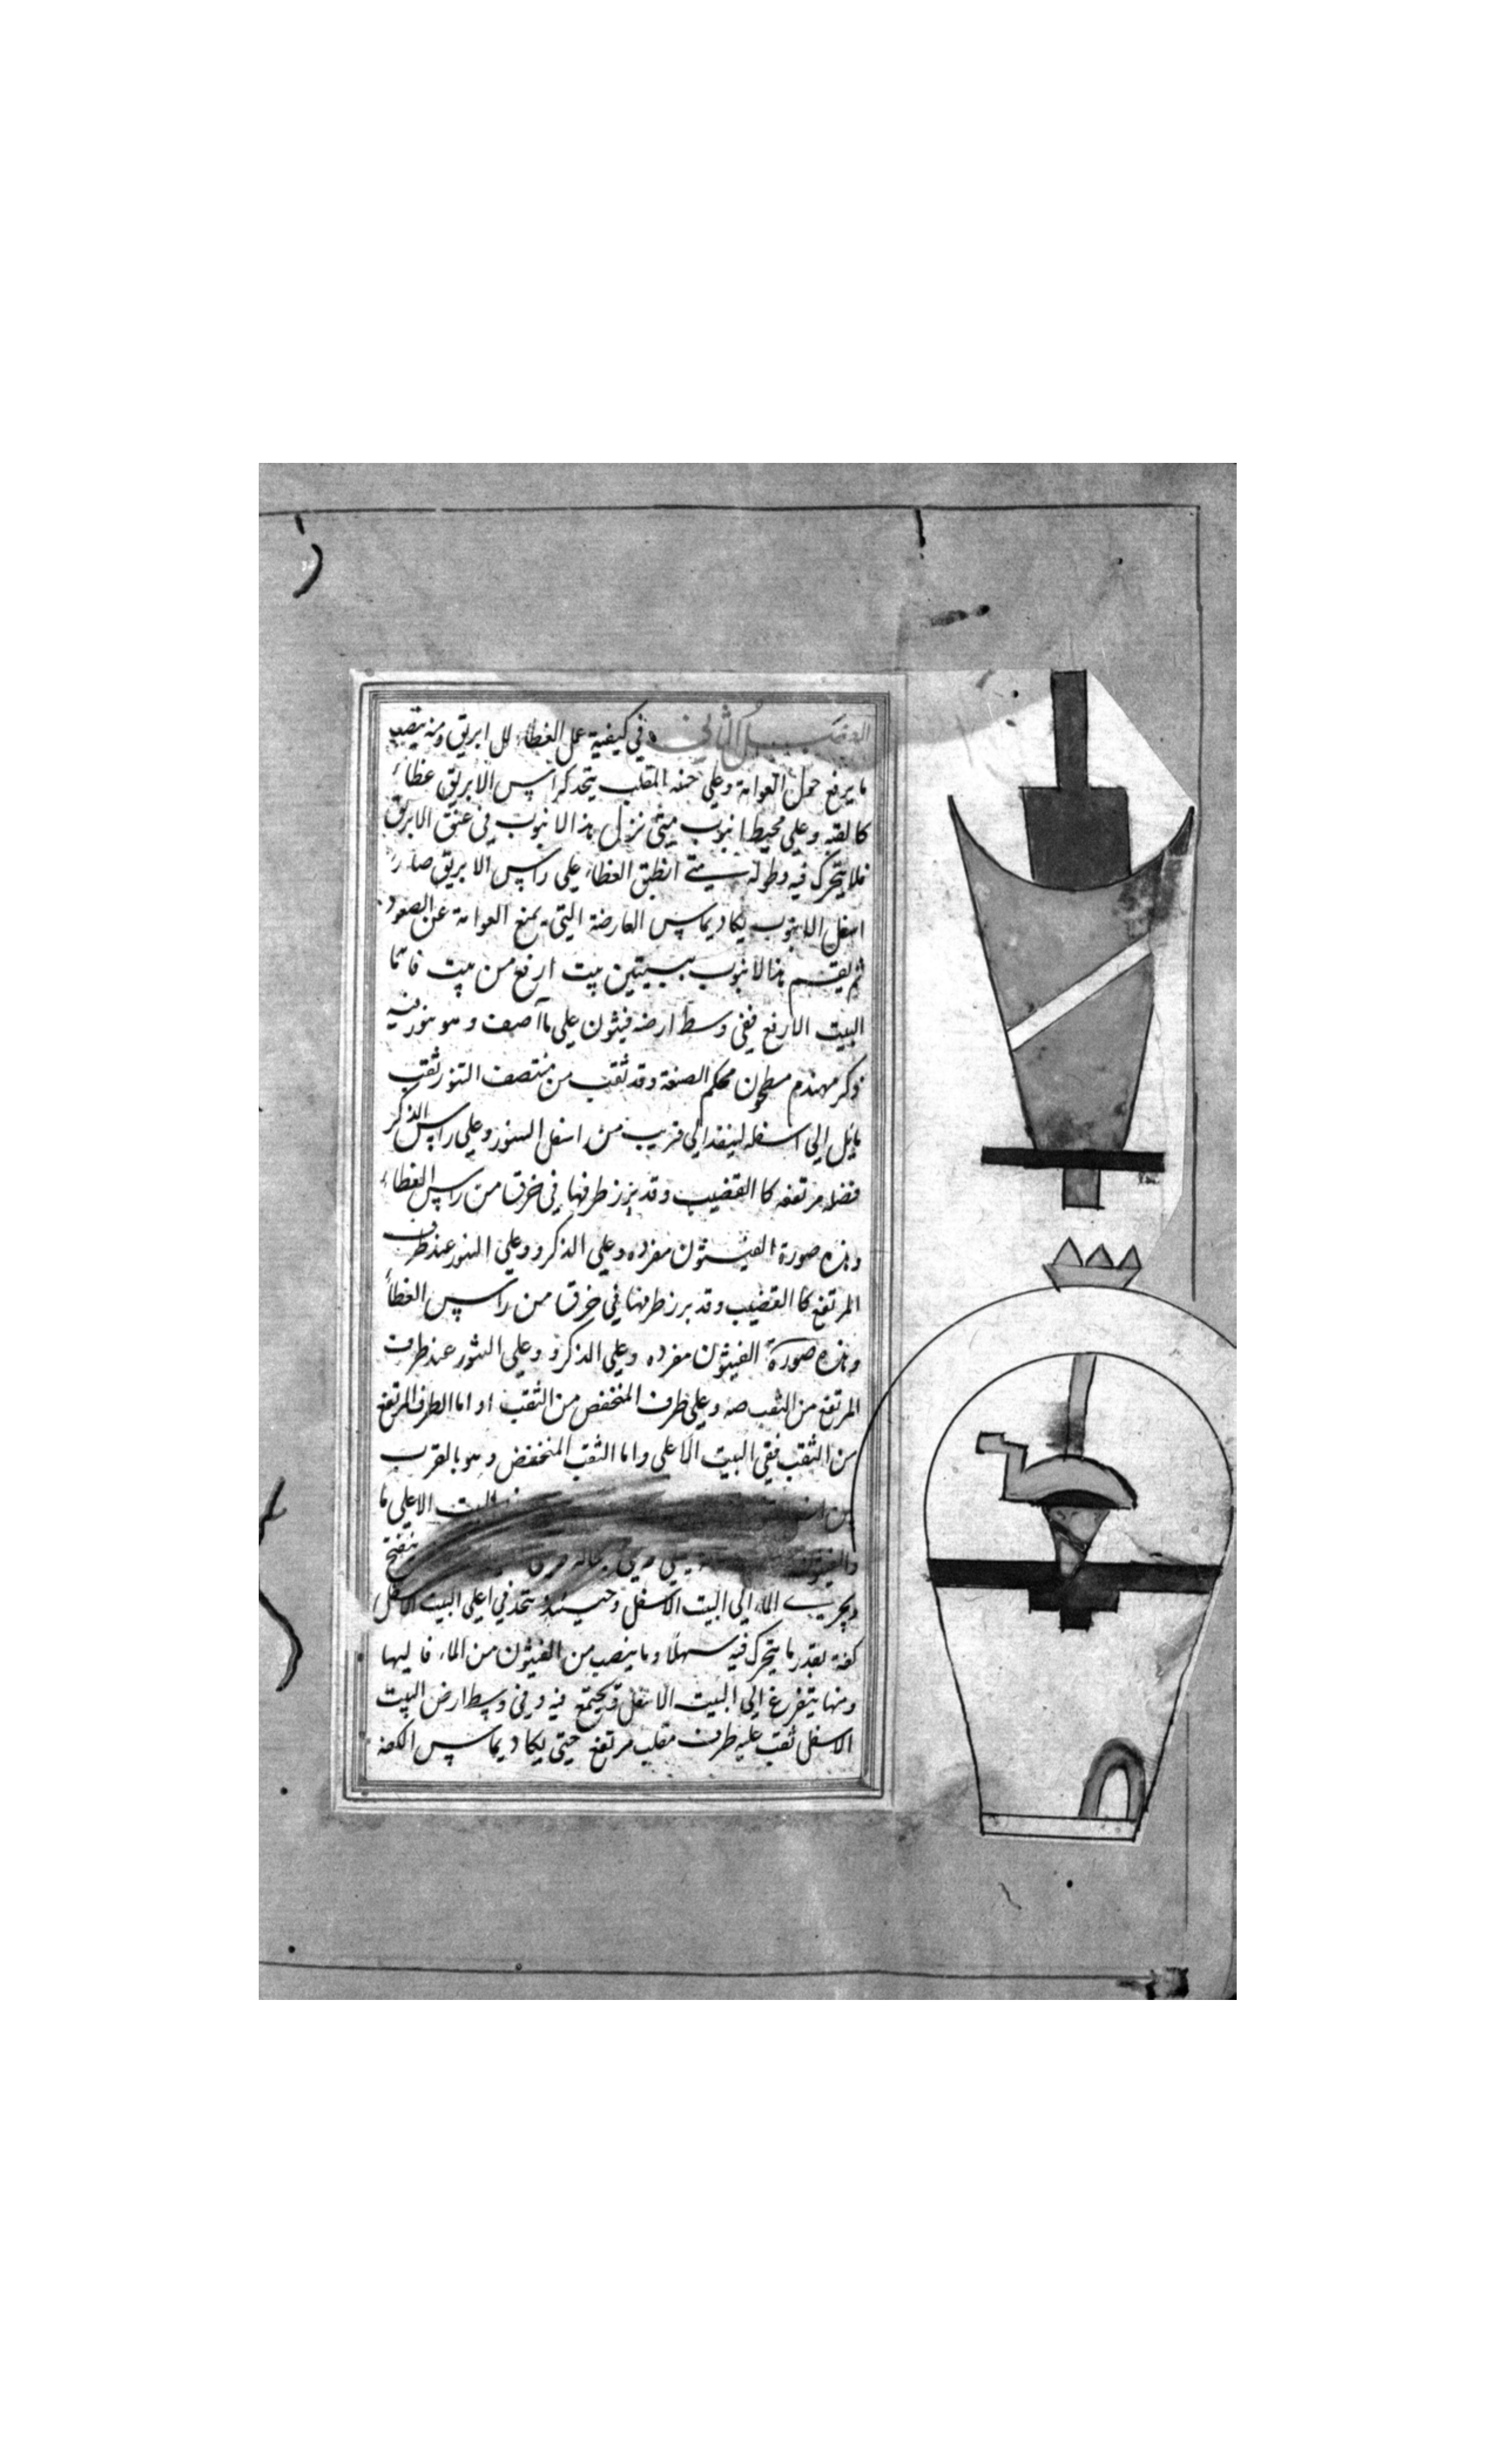 الفصل الثاني في كيفية عمل الغطاء للابريق ومنه ينصب
ما يرفع حمل العوامة وعلى جنبه المقلب يتخذ كراس الابريق غطاء
كالقبة وعلى محيطها انبوب متى نزل هذا الانبوب في عنق الابريق
فلا يتحرك فيه وطوله متى انطبق الغطاء على راس الابريق صار
اسفل الانبوب يكاد يماس العارضة التي تمنع العوامة عن الصعود
ثم يقسم هذا الانبوب ببيتين بيت ارفع من بيت فاما
البيت الارفع ففي وسط ارضه فيثون على ما اصف وهو سور فيه
ذكر مهندم مطحون محكم الصنعة وقد ثقب من منتصف السور ثقب
مايل الى اسفله لينفذ الى قريب من اسفل السور وعلى راس الذكر
فضله مرتفعه كالقضيب وقد برز طرفها في خرق من راس الغطاء
وهذه صورة الفيثون مفرده وعلى الذكر و وعلى السور عند طرف
المرتفع كالقضيب وقد برز طرفها في خرق من راس الغطاء
وهذه صورة الفيثون مفرده وعلى الذكر و وعلى السور عند طرف
المرتفع من الثقب صه وعلى طرف المنخفض من الثقب او اما الطرف المرتفع
من الثقب ففي البيت الاعلى واما الثقب المنخفض وهو بالقرب
من البيت الاعلى ما
والفيثون ينفتح
ويجري الماء الى البيت الاسفل وحينئذ يتخذ في اعلى البيت الاسفل
كفة بقدر ما يتحرك فيه سهلا وما ينصب من الفيثون من الماء فاليها
ومنها يتفرغ الى البيت الاسفل ويجتمع فيه وفي وسط ارض البيت
الاسفل ثقب عليه طرف مقلب مرتفع حتى يكاد يماس الكفة